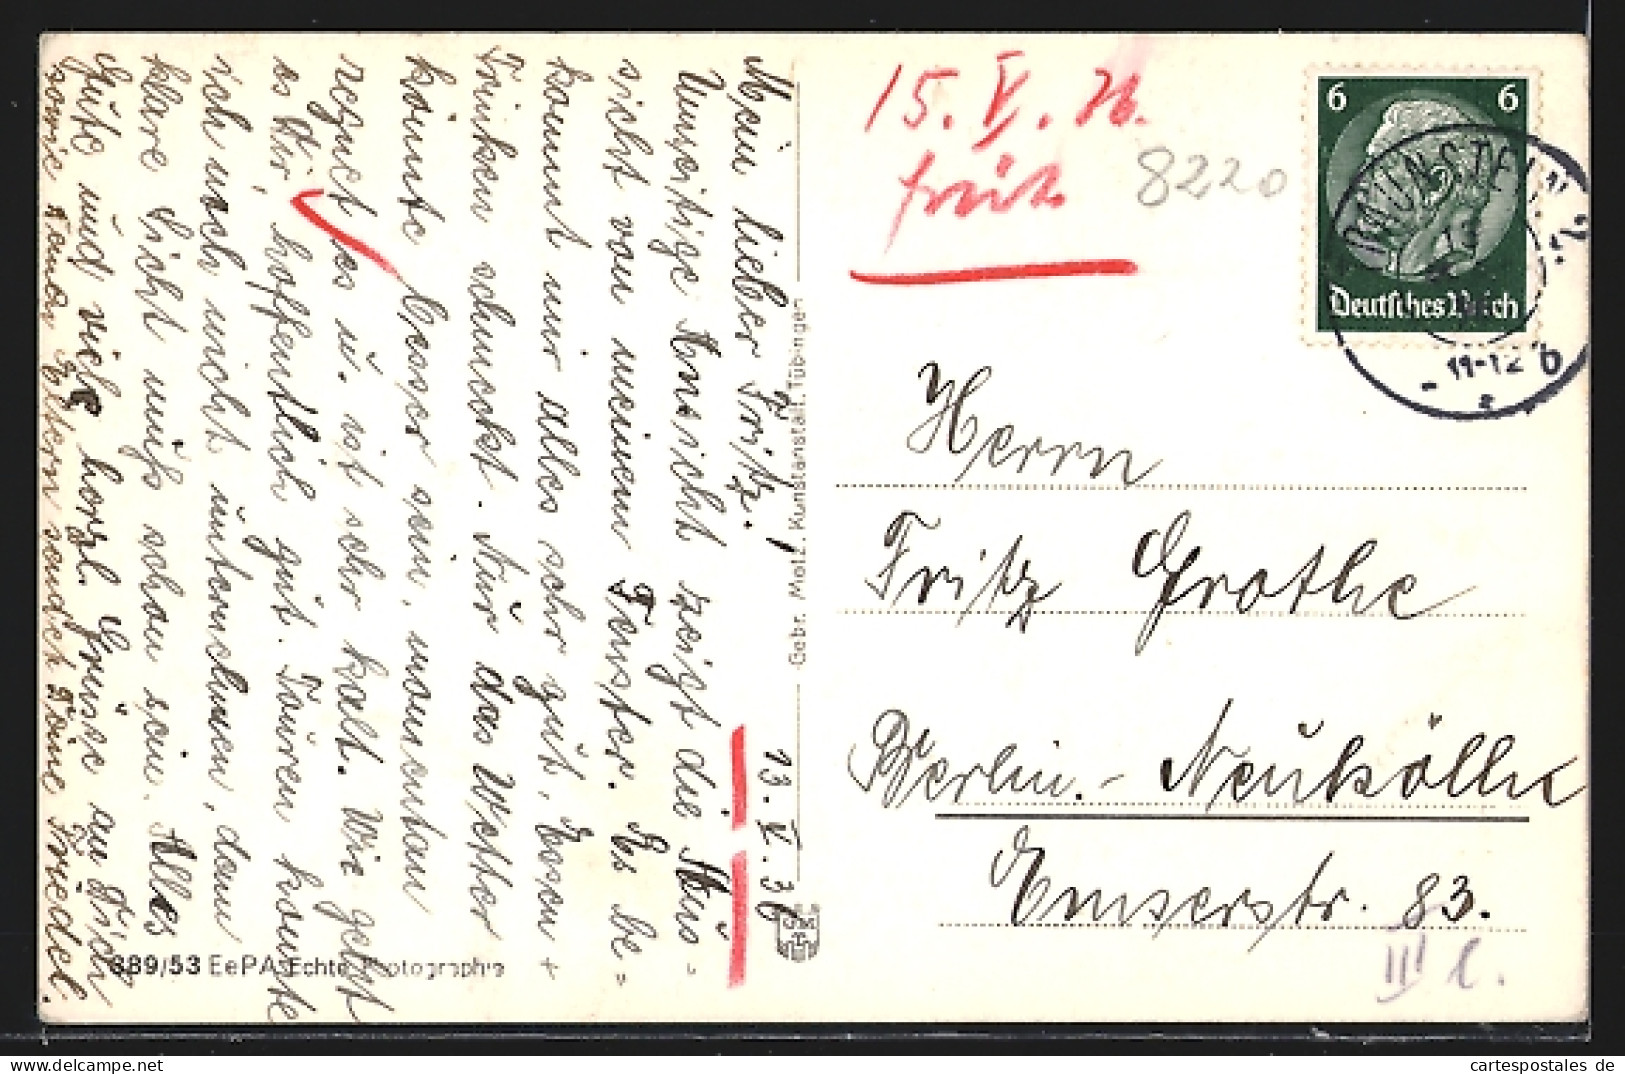 13. V. 36
Mein lieber Fritz!
Umseitige Ansicht zeigt die Aus-
sicht von meinem Fenster. Es be-
kommt mir alles sehr gut, Essen +
Trinken schmeckt. Nur das Wetter
könnte besser sein, momentan
regnet es u. ist sehr kalt. Wie geht
es Dir, hoffentlich gut. Touren konnte
ich noch nicht unternehmen, denn
klare Sicht muß schon sein. Alles
Gute und viele herzl. Grüße an Dich
sowie Deinen Eltern sendet Deine Friedel.
889/53 EePA Echte Photographie
Gebr. Metz, Kunstanstalt, Tübingen
15. V. 36.
früh
8220
6 6
Deutsches Reich
11-12
Herrn
Fritz Grothe
Berlin.- Neukölln
Emserstr. 83.
III l.
cartespostales de